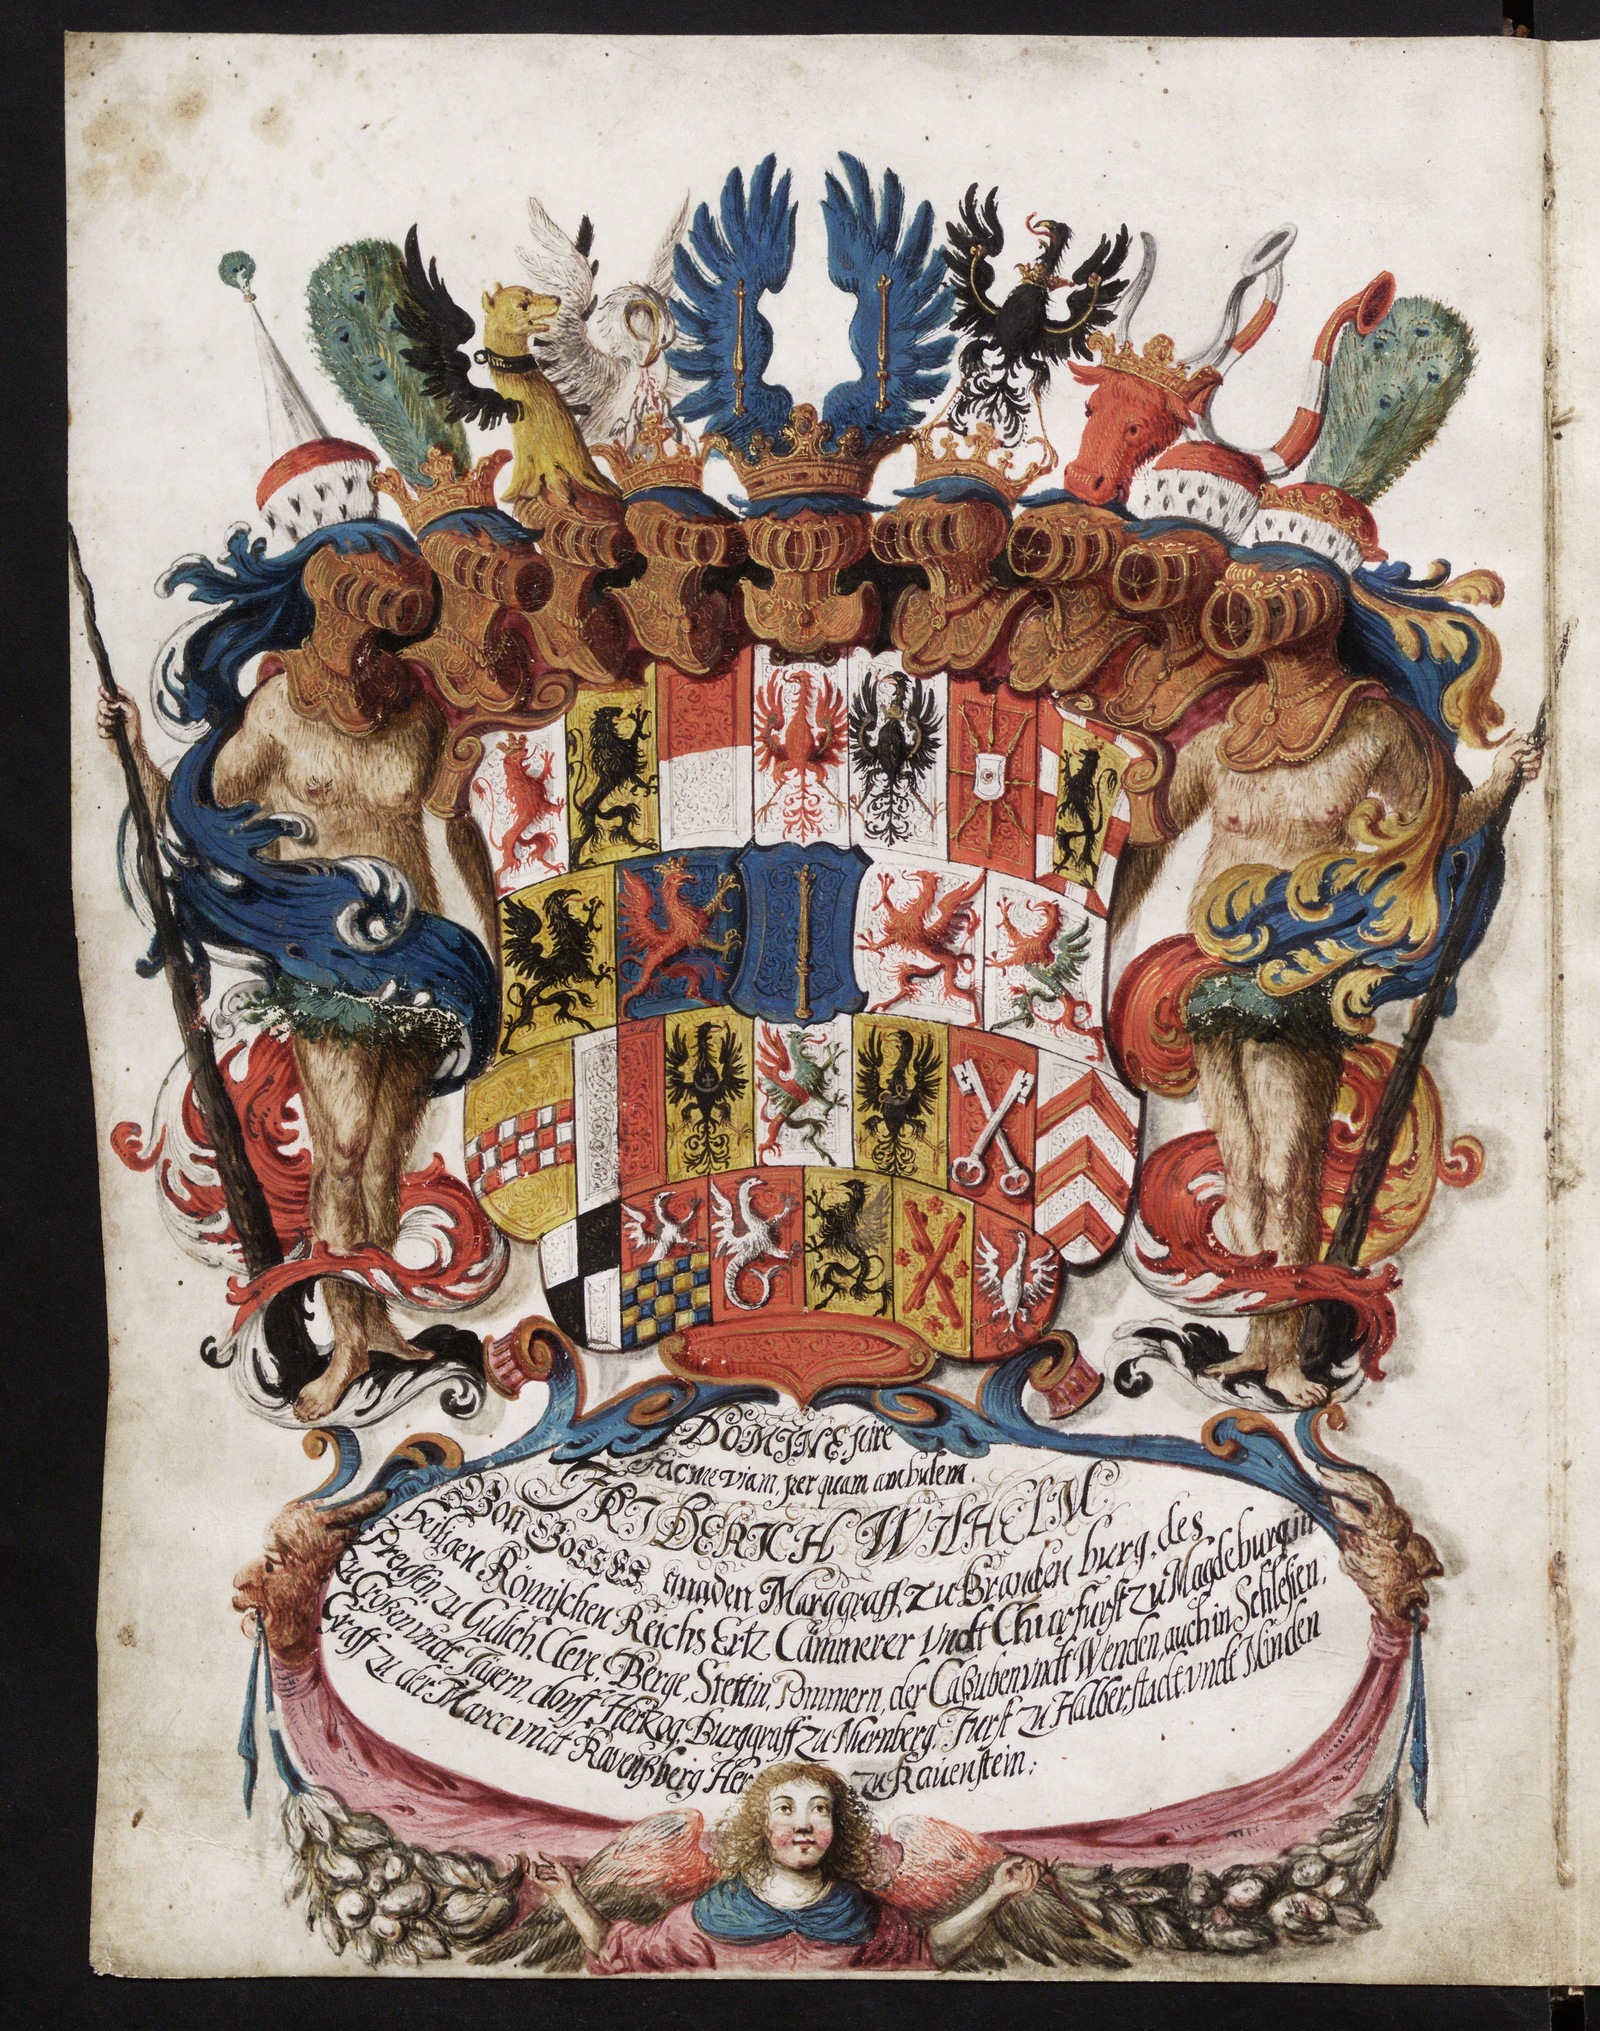 DOMINE scire
Fac me viam, per quam ambulem.
FRIDERICH WILHELM
Von GOTTES gnaden Marggraff, zu Brandenburg, des
Heiligen Römischen Reichs Ertz Cämmerer vndt Churfürst zu Magdeburg, in
Preußen, zu Gülich, Cleve, Berge, Stettin, Pommern, der Caßuben vndt Wenden, auch in Schlesien,
zu Croßen vndt Jägern, dorff, Hertzog, Burggraff zu Nürnberg, Fürst zu Halberstadt, vndt Minden
Graff zu der Marck vndt Ravenßberg Her zu Ravenstein: